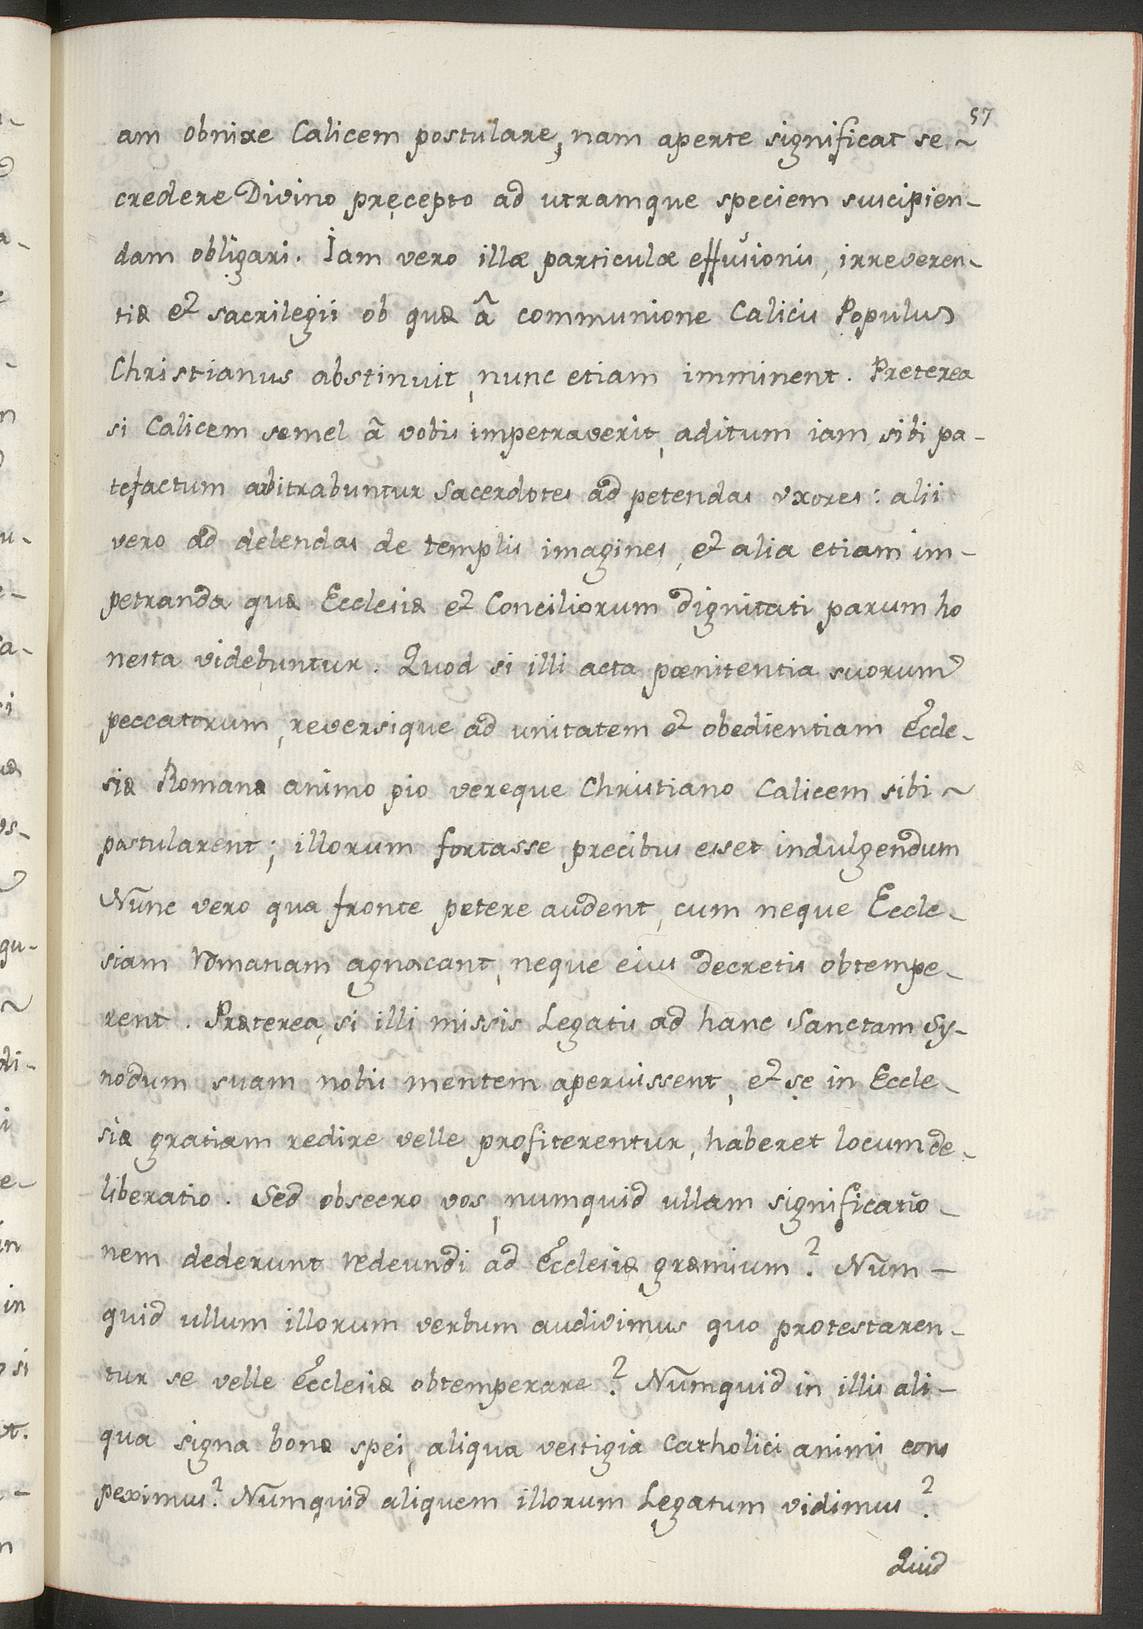 57
am obnixe Calicem postulare, nam aperte significat se ~
credere Divino pręcepto ad utramque speciem suscipien-
dam obligari. Iam vero illæ particulæ effusionis, irreveren-
tiæ et sacrilegii ob quæ â communione Calicis Populus
Christianus abstinuit, nunc etiam imminent. Preterea
si Calicem semel â vobis impetraverit, aditum iam sibi pa-
tefactum arbitrabuntur Sacerdotes ad petendas uxores: alii
vero ad delendas de templis imagines, et alia etiam im-
petranda quæ Ecclesiæ et Conciliorum dignitati parum ho
nesta videbuntur. Quod si illi acta pœnitentia suorum
peccatorum, reversique ad unitatem et obedientiam Eccle-
siæ Romanæ animo pio vereque Christiano Calicem sibi ~
postularent; illorum fortasse precibus esset indulgendum
Nunc vero qua fronte petere audent, cum neque Eccle-
siam Romanam agnoscant, neque eius decretis obtempe-
rent. Præterea, si illi missis Legatis ad hanc Sanctam Sy-
nodum suam nobis mentem aperuissent, et se in Eccle-
siæ gratiam redire velle profiterentur, haberet locum de-
liberatio. Sed obsecro vos, numquid ullam significatio-
nem dederunt redeundi ad Ecclesiæ græmium? Num-
quid ullum illorum verbum audivimus quo protestaren-
tur se velle Ecclesiæ obtemperare? Numquid in illis ali-
qua signa bonæ spei, aliqua vestigia Catholici animi cons
peximus? Numquid aliquem illorum Legatum vidimus?
Quid